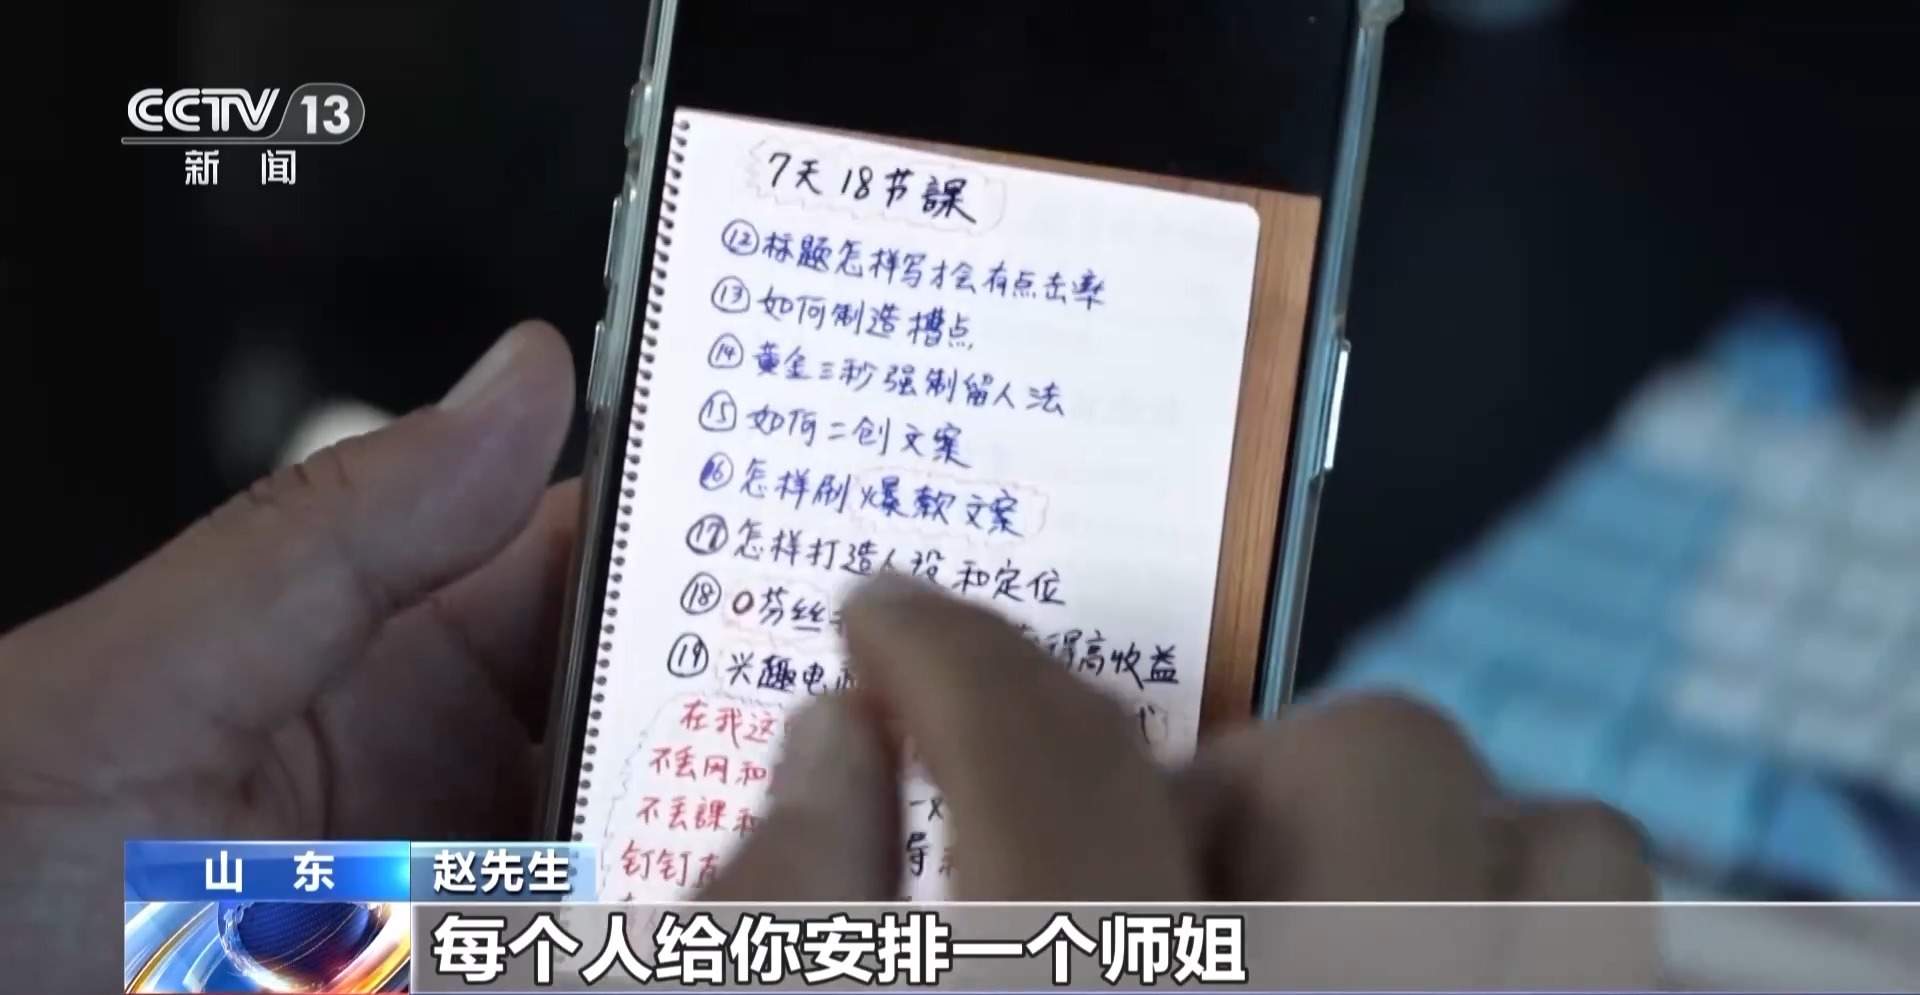 CCTV 13
新闻
7天18节課
⑫标题怎样写才会有点击率
⑬如何制造槽点
⑭黄金三秒强制留人法
⑮如何二创文案
⑯怎样刷爆款文案
⑰怎样打造人设和定位
⑱0芬丝
得高收益
⑲兴趣电
在我这
不丢网和
不丢課和
钉钉直
导
山东
赵先生
每个人给你安排一个师姐